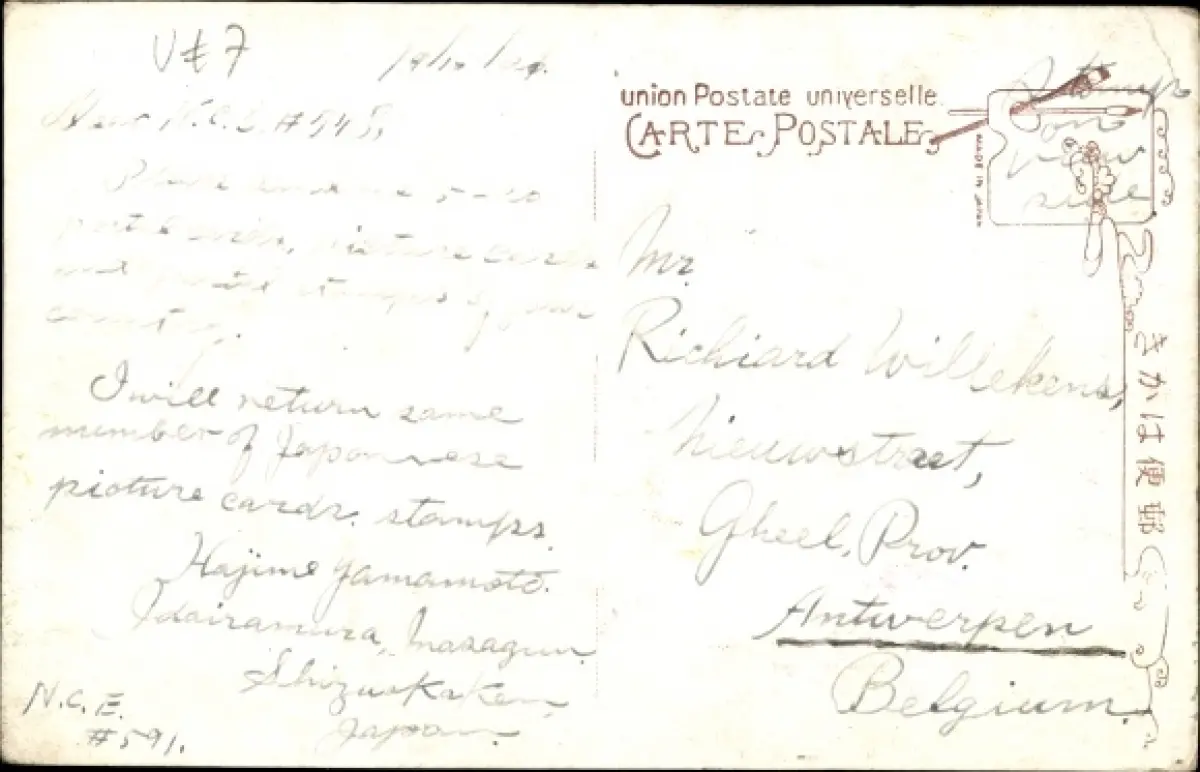 V£7
Dear N.C.E. #545,
Please send me 5-10
postal cards, picture cards
and postal stamps of your
country.
I will return same
number of Japanese
picture cards. stamps.
Hajime Yamamoto.
Idairamura, Inasagun.
Shizuoka Ken,
Japan.
N.C.E.
#591.
union Postale universelle
CARTE POSTALE
MADE IN JAPAN
Stamps
on
view
side
Mr.
Richiard Willekens,
Nieuwstraet,
Gheel, Prov.
Antwerpen
Belgium.
きかは便郵